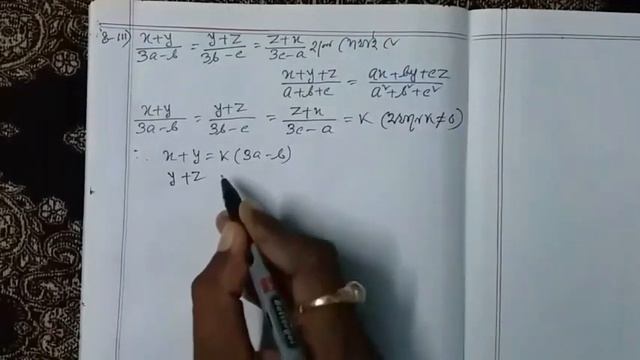 8.(11) (x+y)/(3a-b) = (y+z)/(3b-c) = (z+x)/(3c-a) হলে দেখাই যে
(x+y+z)/(a+b+c) = (ax+by+cz)/(a²+b²+c²)
(x+y)/(3a-b) = (y+z)/(3b-c) = (z+x)/(3c-a) = K (যেখানে K≠0)
∴ x+y = K(3a-b)
y+z